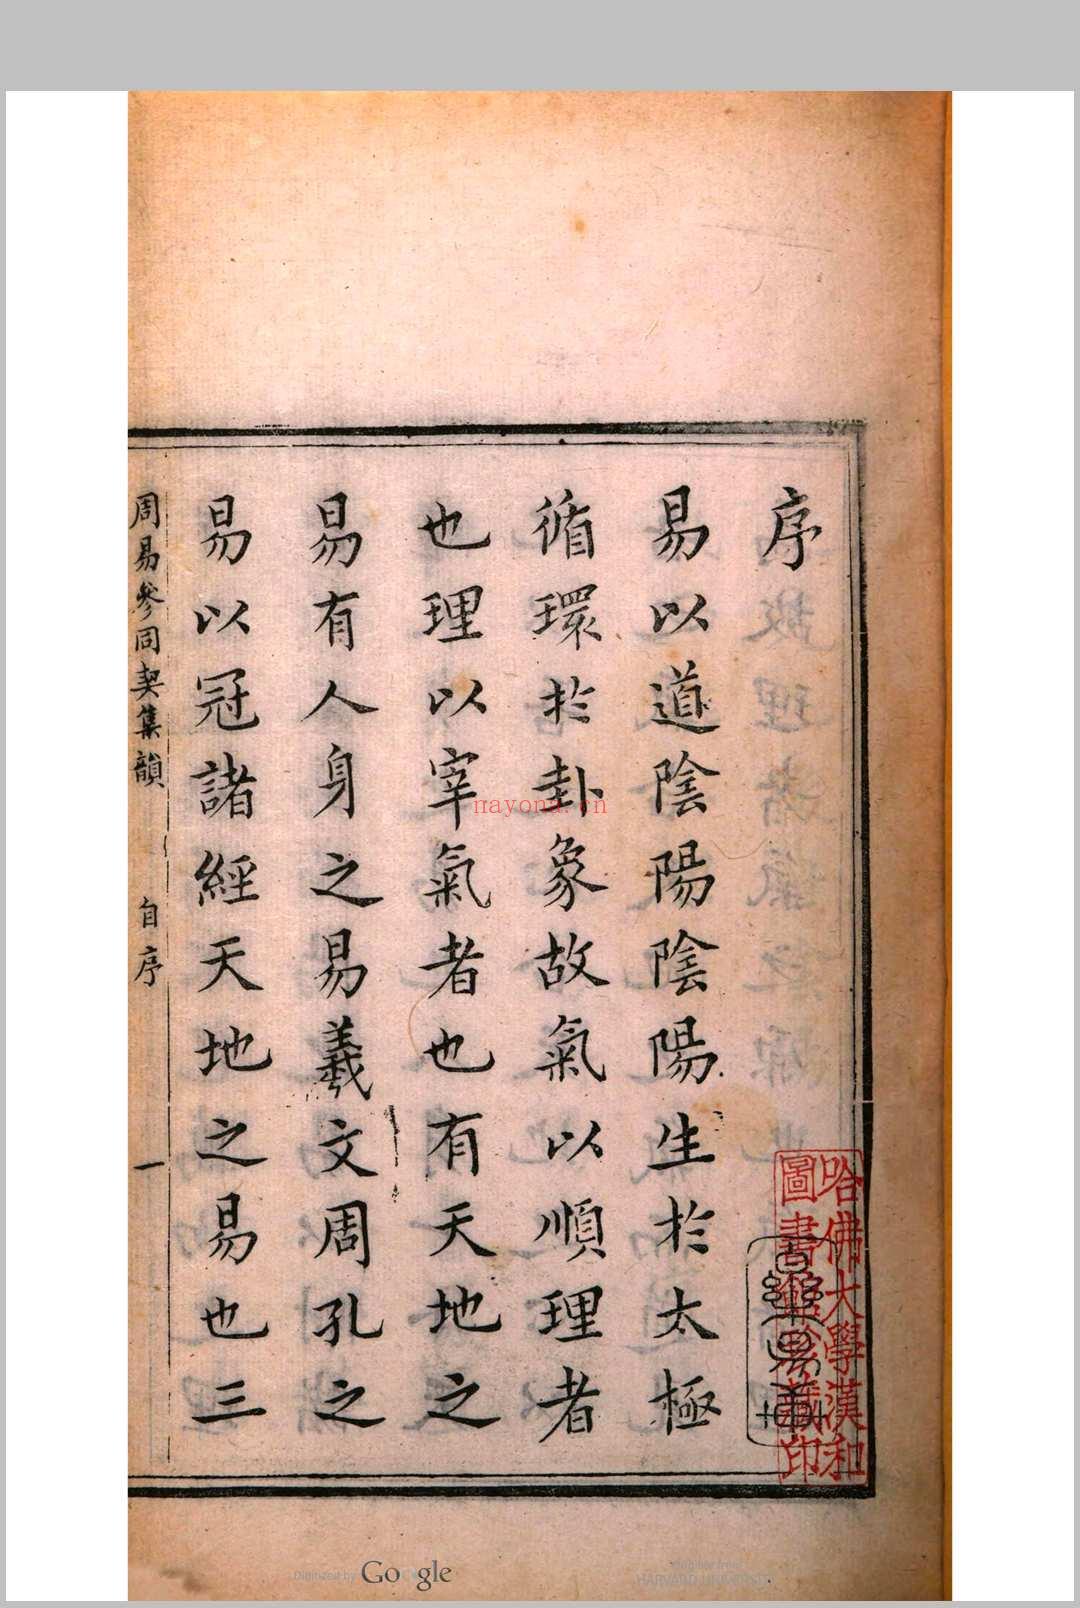 序
易以道陰陽陰陽生於太極
循環於卦象故氣以順理者
也理以宰氣者也有天地之
易有人身之易羲文周孔之
易以冠諸經天地之易也三
周易參同契集韻
自序
一
哈佛大學漢和
圖書館珍藏印
nayona.cn
Digitized by Google
Original from
HARVARD UNIVERSITY